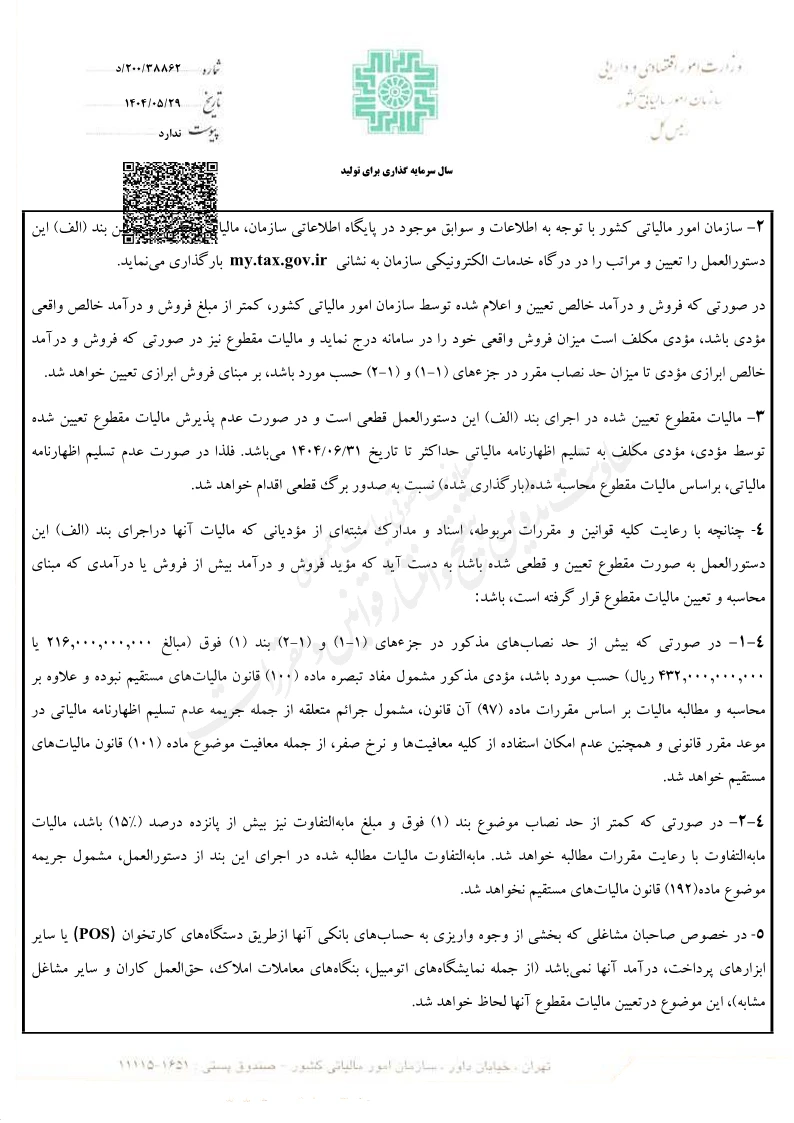 وزارت امور اقتصادی و دارایی
سازمان امور مالیاتی کشور
رئیس کل
شماره ۲۰۰/۳۸۸۶۲/د
تاریخ ۱۴۰۴/۰۵/۲۹
پیوست ندارد
سال سرمایه گذاری برای تولید
۲- سازمان امور مالیاتی کشور با توجه به اطلاعات و سوابق موجود در پایگاه اطلاعاتی سازمان، بند (الف) این
دستورالعمل را تعیین و مراتب را در درگاه خدمات الکترونیکی سازمان به نشانی my.tax.gov.ir بارگذاری می‌نماید.
در صورتی که فروش و درآمد خالص تعیین و اعلام شده توسط سازمان امور مالیاتی کشور، کمتر از مبلغ فروش و درآمد خالص واقعی
مؤدی باشد، مؤدی مکلف است میزان فروش واقعی خود را در سامانه درج نماید و مالیات مقطوع نیز در صورتی که فروش و درآمد
خالص ابرازی مؤدی تا میزان حد نصاب مقرر در جزءهای (۱-۱) و (۱-۲) حسب مورد باشد، بر مبنای فروش ابرازی تعیین خواهد شد.
۳- مالیات مقطوع تعیین شده در اجرای بند (الف) این دستورالعمل قطعی است و در صورت عدم پذیرش مالیات مقطوع تعیین شده
توسط مؤدی، مؤدی مکلف به تسلیم اظهارنامه مالیاتی حداکثر تا تاریخ ۱۴۰۴/۰۶/۳۱ می‌باشد. فلذا در صورت عدم تسلیم اظهارنامه
مالیاتی، براساس مالیات مقطوع محاسبه شده(بارگذاری شده) نسبت به صدور برگ قطعی اقدام خواهد شد.
٤- چنانچه با رعایت کلیه قوانین و مقررات مربوطه، اسناد و مدارک مثبته‌ای از مؤدیانی که مالیات آنها دراجرای بند (الف) این
دستورالعمل به صورت مقطوع تعیین و قطعی شده باشد به دست آید که مؤید فروش و درآمد بیش از فروش یا درآمدی که مبنای
محاسبه و تعیین مالیات مقطوع قرار گرفته است، باشد:
٤-۱- در صورتی که بیش از حد نصاب‌های مذکور در جزءهای (۱-۱) و (۱-۲) بند (۱) فوق (مبالغ ۲۱۶,۰۰۰,۰۰۰,۰۰۰ یا
۴۳۲,۰۰۰,۰۰۰,۰۰۰ ریال) حسب مورد باشد، مؤدی مذکور مشمول مفاد تبصره ماده (۱۰۰) قانون مالیات‌های مستقیم نبوده و علاوه بر
محاسبه و مطالبه مالیات بر اساس مقررات ماده (۹۷) آن قانون، مشمول جرائم متعلقه از جمله جریمه عدم تسلیم اظهارنامه مالیاتی در
موعد مقرر قانونی و همچنین عدم امکان استفاده از کلیه معافیت‌ها و نرخ صفر، از جمله معافیت موضوع ماده (۱۰۱) قانون مالیات‌های
مستقیم خواهد شد.
٤-۲- در صورتی که کمتر از حد نصاب موضوع بند (۱) فوق و مبلغ مابه‌التفاوت نیز بیش از پانزده درصد (۱۵٪) باشد، مالیات
مابه‌التفاوت با رعایت مقررات مطالبه خواهد شد. مابه‌التفاوت مالیات مطالبه شده در اجرای این بند از دستورالعمل، مشمول جریمه
موضوع ماده(۱۹۲) قانون مالیات‌های مستقیم نخواهد شد.
٥- در خصوص صاحبان مشاغلی که بخشی از وجوه واریزی به حساب‌های بانکی آنها ازطریق دستگاه‌های کارتخوان (POS) یا سایر
ابزارهای پرداخت، درآمد آنها نمی‌باشد (از جمله نمایشگاه‌های اتومبیل، بنگاه‌های معاملات املاک، حق‌العمل کاران و سایر مشاغل
مشابه)، این موضوع درتعیین مالیات مقطوع آنها لحاظ خواهد شد.
تهران ، خیابان داور ، سازمان امور مالیاتی کشور - صندوق پستی : ۱۶۵۱-۱۱۱۱۵